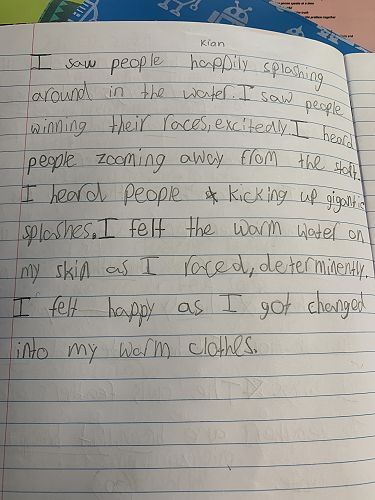 Kian
I saw people happily splashing
around in the water. I saw people
winning their races, excitedly. I heard
people zooming away from the start.
I heard people kicking up gigantic
splashes. I felt the warm water on
my skin as I raced, determinently.
I felt happy as I got changed
into my warm clothes.